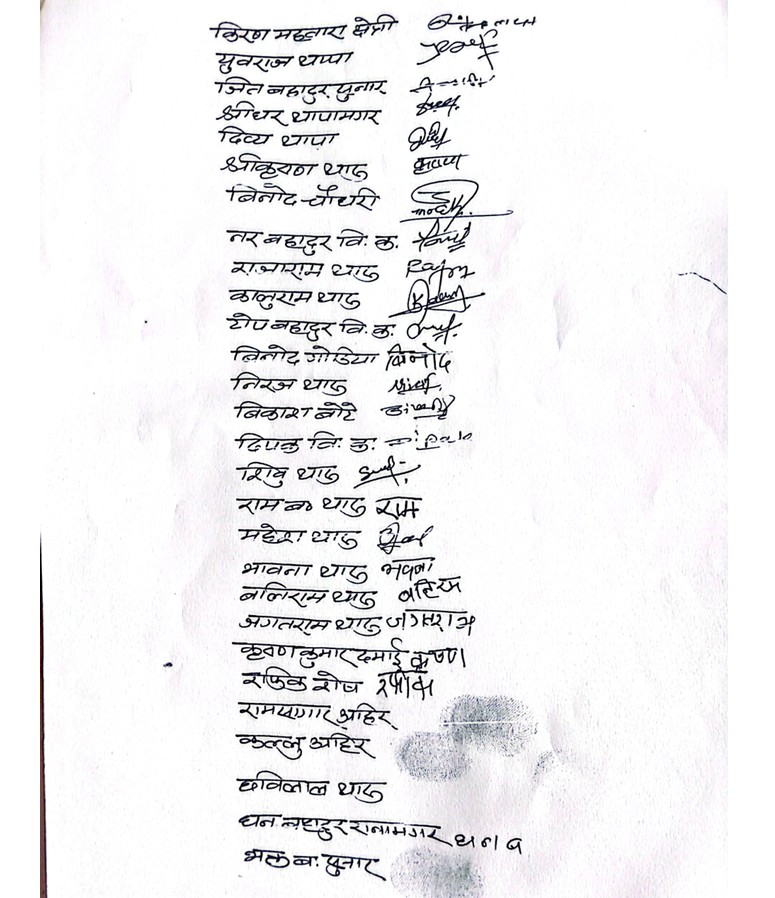 किरण महतारा क्षेत्री
युवराज थापा
जित बहादुर पुनार
श्रीधर थापामगर
दिव्य थापा
श्रीकृष्ण थारु कृष्ण
बिनोद चौधरी
नर बहादुर वि. क.
राजाराम थारु
कालुराम थारु
टोप बहादुर वि. क.
बिनोद गोडिया बिनोद
निरज थारु
बिकाश बोटे
दिपक वि. क.
शिवु थारु
राम ब० थारु राम
महेश थारु
भावना थारु भावना
बलिराम थारु
जगतराम थारु जगतराम
कृष्ण कुमार दमाई कृष्ण
रफिक शेष रफीक
रामसागार अहिर
कल्लु अहिर
छविलाल थारु
धन बहादुर रानामगर धन ब
भल ब. पुनार